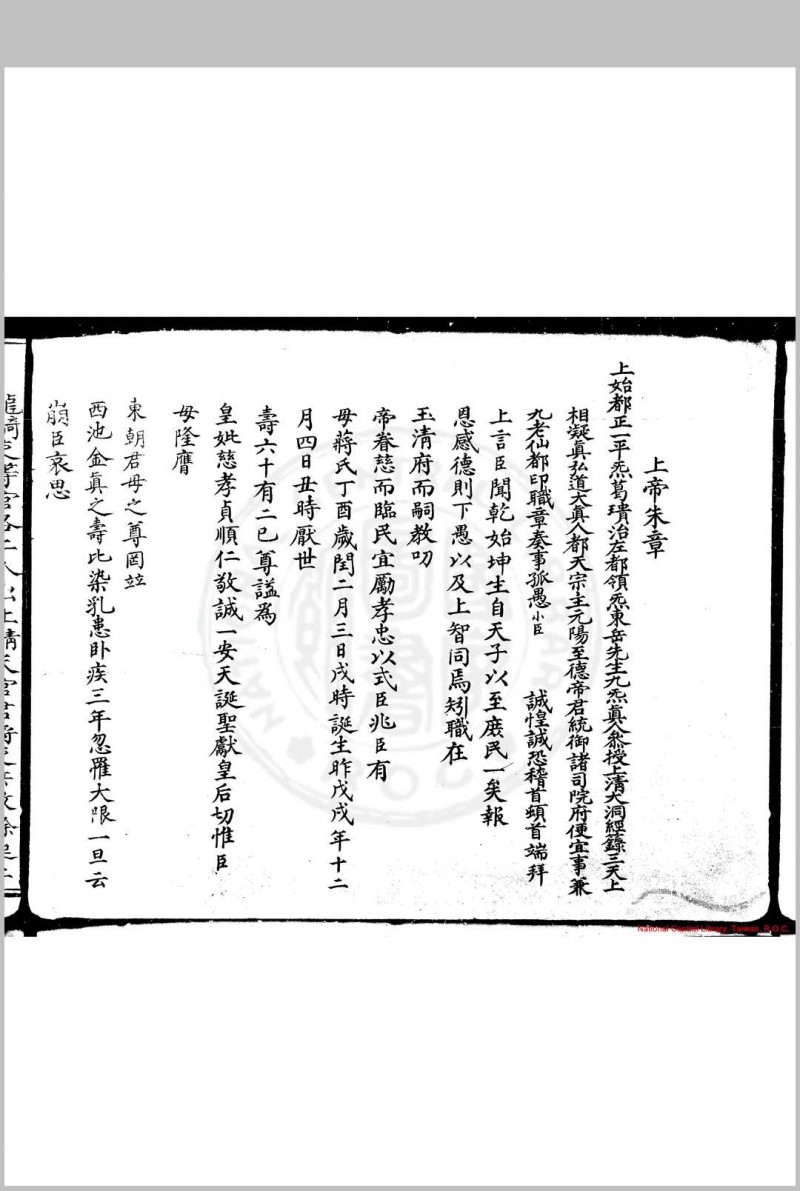 上帝朱章
上始都正一平炁葛璝治左都領炁東岳先生九炁真人叅授上清大洞經籙三天上
相凝真弘道大真人都天宗主元陽至德帝君統御諸司院府便宜事兼
九老仙都印職章奏事孤愚小臣　　誠惶誠恐稽首頓首端拜
上言臣聞乾始坤生自天子以至庶民一矣報
恩感德則下愚以及上智同焉矧職在
玉清府而嗣教叨
帝眷慈而臨民宜勵孝忠以式臣兆臣有
母蔣氏丁酉歲閏二月三日戌時誕生昨戊戌年十二
月四日丑時厭世
壽六十有二已尊謚為
皇妣慈孝貞順仁敬誠一安天誕聖獻皇后切惟臣
母隆膺
東朝君母之尊罔竝
西池金真之壽比染乳患卧疾三年忽罹大限一旦云
崩臣哀思
National Central Library, Taiwan, R.O.C.